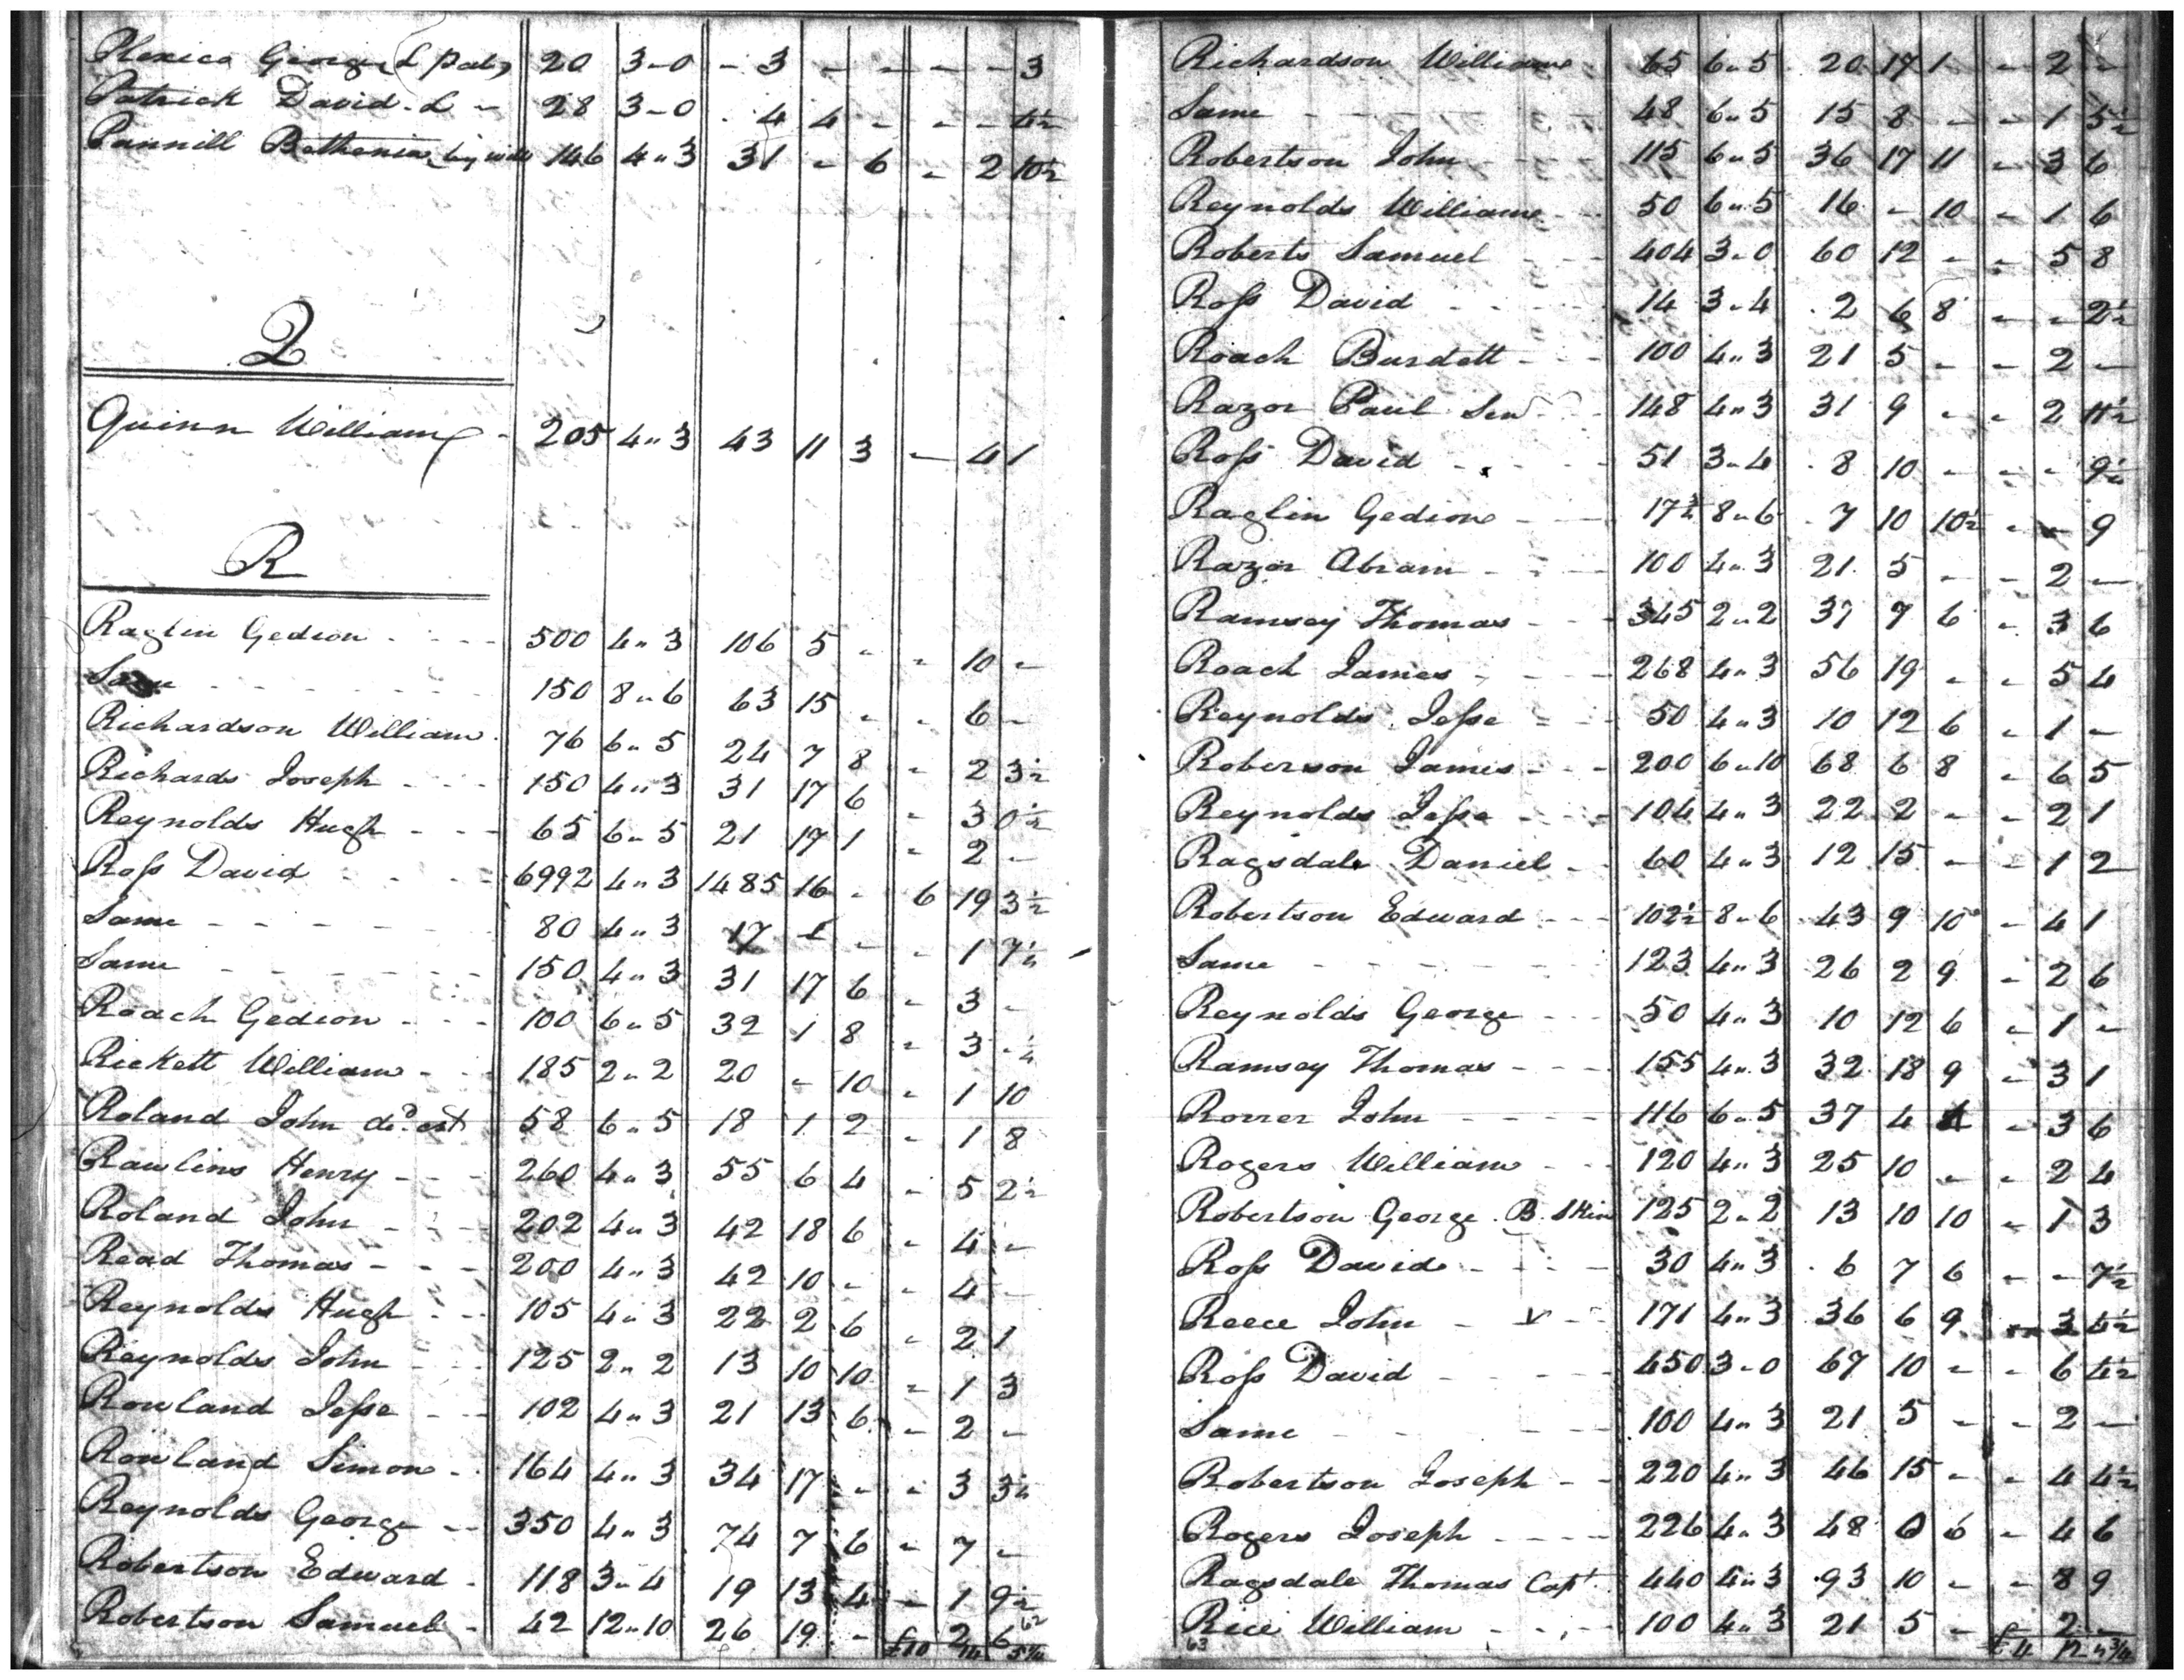 Plexico George (L pat) 20 3-0 - 3 - - - - 3
Patrick David. L - 28 3-0 . 4 4 - - - 4½
Pannill Bethenia by will 146 4"3 31 - 6 - 2 10½
Q
Quinn William - 205 4"3 43 11 3 - 4 1
R
Raglin Gedion - - - 500 4"3 106 5 - - 10 -
Same - - - 150 8"6 63 15 - - 6 -
Richardson William 76 6"5 24 7 8 - 2 3½
Richards Joseph - - - 150 4"3 31 17 6 - 3 0½
Reynolds Hugh - - - 65 6"5 21 17 1 - 2 -
Roſs David - - - 6992 4"3 1485 16 - 6 19 3½
Same - - - 80 4"3 17 - - - 1 7¼
Same - - - 150 4"3 31 17 6 - 3 -
Roach Gedion - - - 100 6"5 32 1 8 - 3 - ¼
Rickett William - - 185 2"2 20 - 10 - 1 10
Roland John decd. est 58 6"5 18 1 2 - 1 8
Rawlins Henry - - - 260 4"3 55 6 4 - 5 2½
Roland John - - - 202 4"3 42 18 6 - 4 -
Read Thomas - - - 200 4"3 42 10 - - 4 -
Reynolds Hugh - - - 105 4"3 22 2 6 - 2 1
Reynolds John - - - 125 2"2 13 10 10 - 1 3
Rowland Jeſse - - - 102 4"3 21 13 6 - 2 -
Rowland Simon - 164 4"3 34 17 - - 3 3¼
Reynolds George - - 350 4"3 74 7 6 - 7 -
Robertson Edward - 118 3"4 19 13 4 - 1 9½
Robertson Samuel - 42 12"10 26 19 - - 2 6
62
£10 14 5¾
Richardson William 65 6"5 20 17 1 - 2 -
Same - - - 48 6"5 15 8 - - 1 5½
Robertson John - - - 115 6"5 36 17 11 - 3 6
Reynolds William - - 50 6"5 16 - 10 - 1 6
Roberts Samuel - - - 404 3-0 60 12 - - 5 8
Roſs David - - - 14 3"4 2 6 8 - - 2½
Roach Burdett - - - 100 4"3 21 5 - - 2 -
Razor Paul Senr - - 148 4"3 31 9 - - 2 11½
Roſs David - - - 51 3"4 8 10 - - - 9¼
Raglin Gedion - - - 17¾ 8"6 7 10 10½ - - 9
Razor Abram - - - 100 4"3 21 5 - - 2 -
Ramsey Thomas - - - 345 2"2 37 7 6 - 3 6
Roach James - - - 268 4"3 56 19 - - 5 4
Reynolds Jeſse - - - 50 4"3 10 12 6 - 1 -
Roberson James - - - 200 6"10 68 6 8 - 6 5
Reynolds Jeſse - - - 104 4"3 22 2 - - 2 1
Ragsdale Daniel - - 60 4"3 12 15 - - 1 2
Robertson Edward - - - 102½ 8"6 43 9 10 - 4 1
Same - - - 123 4"3 26 2 9 - 2 6
Reynolds George - - - 50 4"3 10 12 6 - 1 -
Ramsey Thomas - - - 155 4"3 32 18 9 - 3 1
Rorrer John - - - 116 6"5 37 4 4 - 3 6
Rogers William - - - 120 4"3 25 10 - - 2 4
Robertson George B. Skin 125 2"2 13 10 10 - 1 3
Roſs David - - - 30 4"3 6 7 6 - - 7½
Reece John - v - 171 4"3 36 6 9 - 3 4½
Roſs David - - - 450 3-0 67 10 - - 6 4½
Same - - - 100 4"3 21 5 - - 2 -
Robertson Joseph - - 220 4"3 46 15 - - 4 4½
Rogers Joseph - - - 226 4"3 48 0 6 - 4 6
Ragsdale Thomas Capt. 440 4"3 93 10 - - 8 9
Rice William - - - 100 4"3 21 5 - - 2 -
63
£4 12